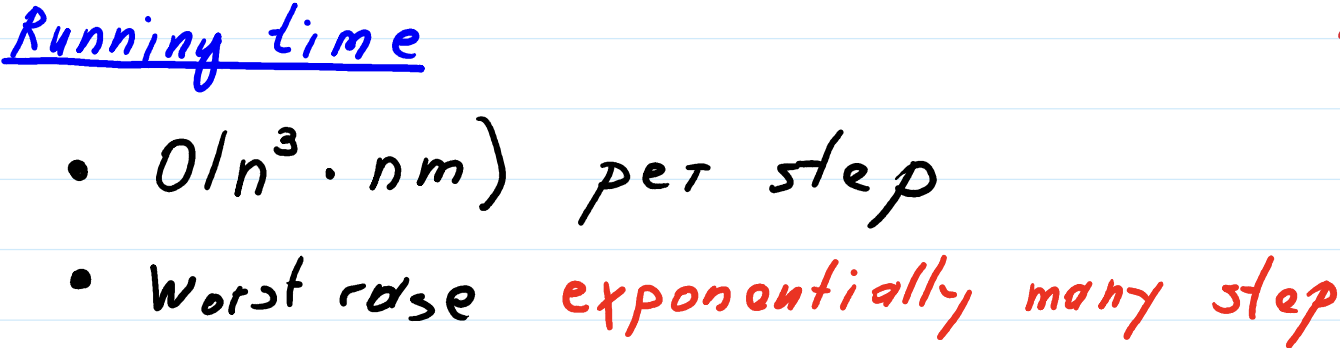 Running time
• O(n³ · nm) per step
• Worst case exponentially many step